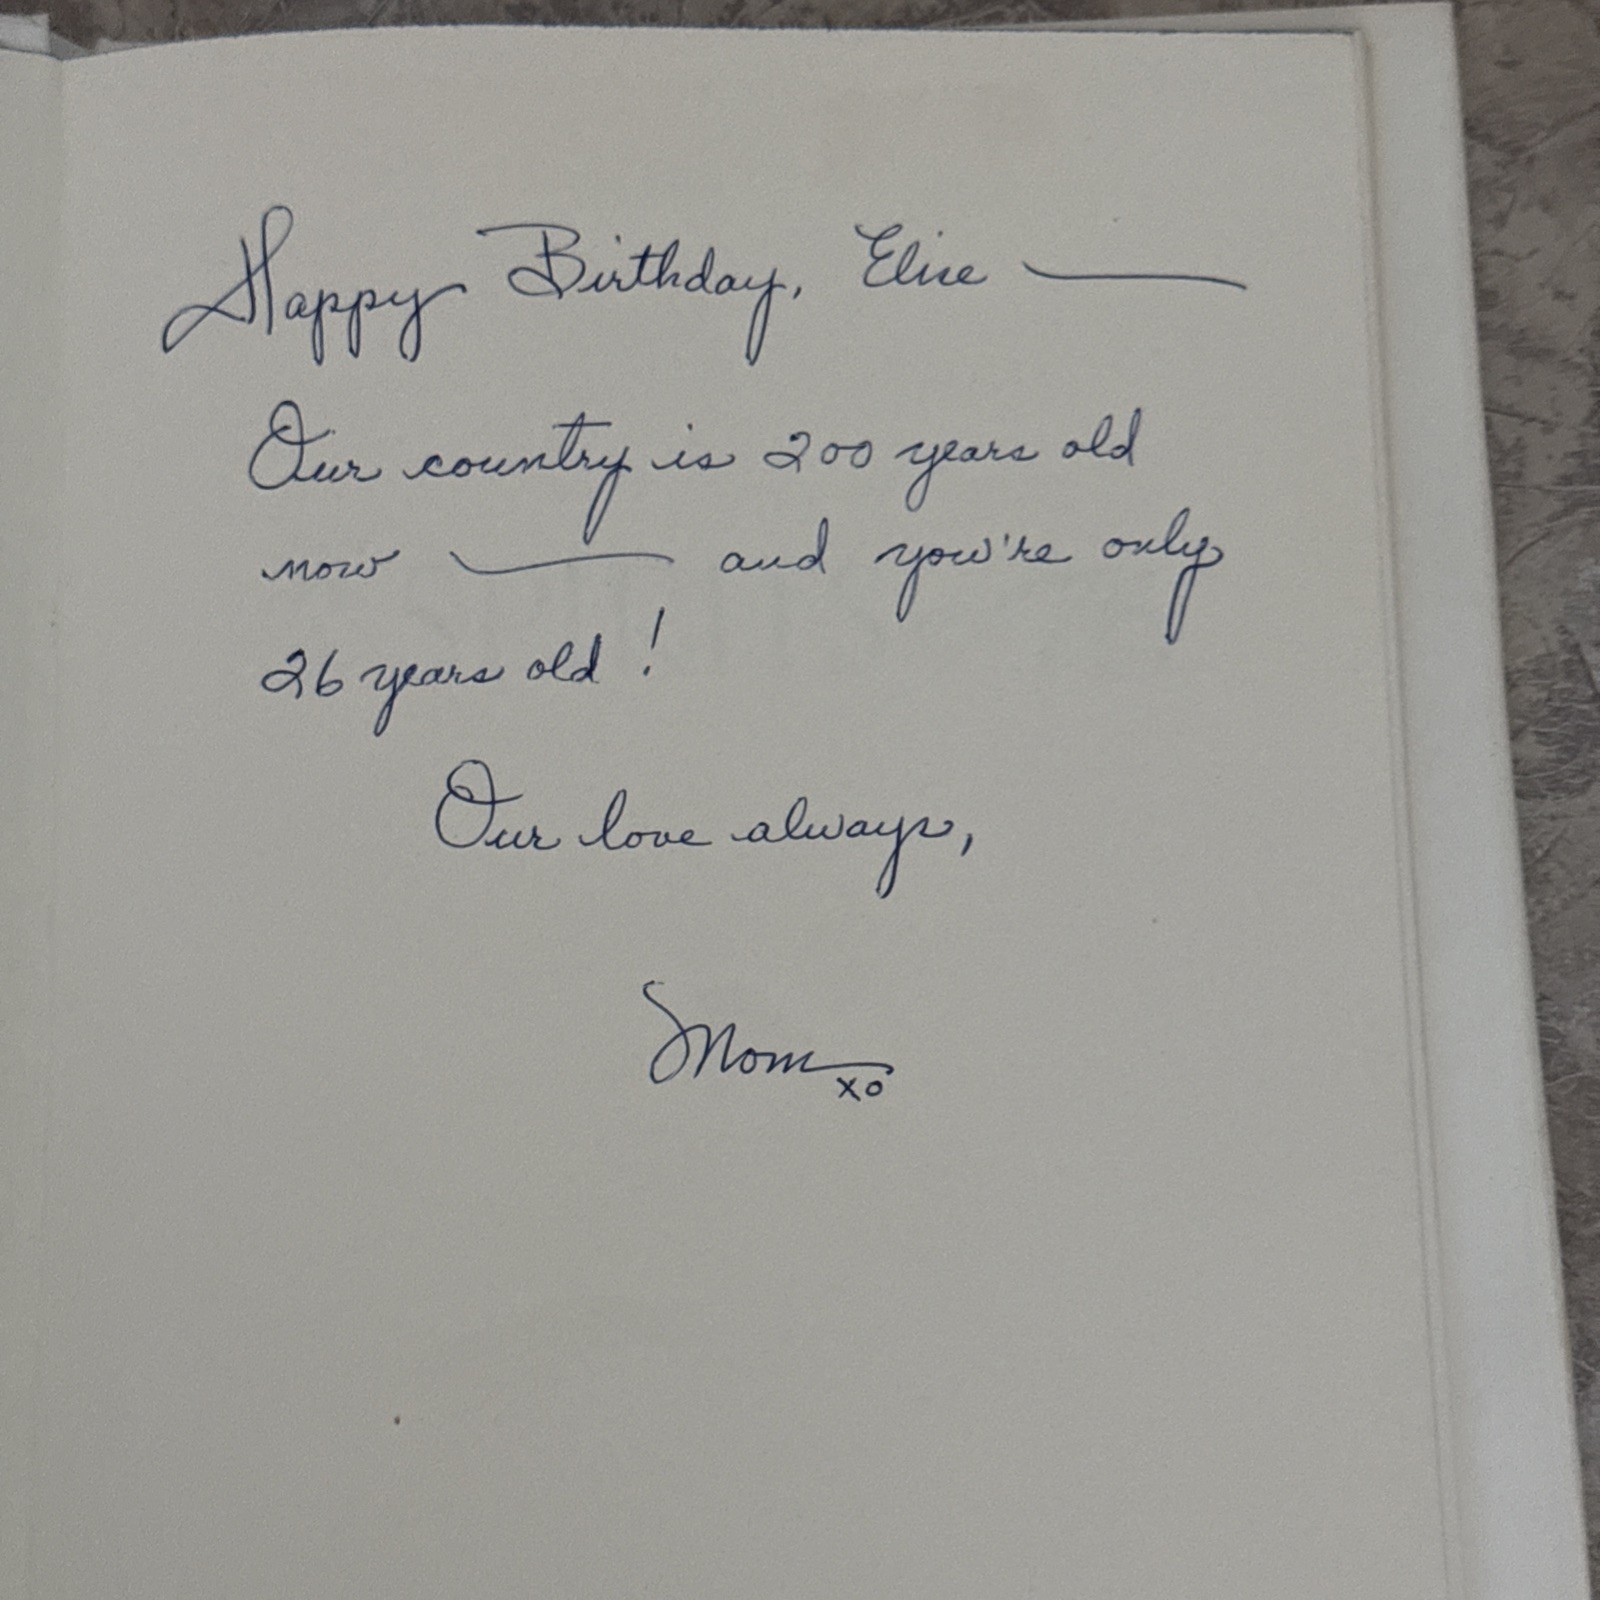 Happy Birthday, Elise —
Our country is 200 years old
now — and you're only
26 years old!
Our love always,
Mom
xo